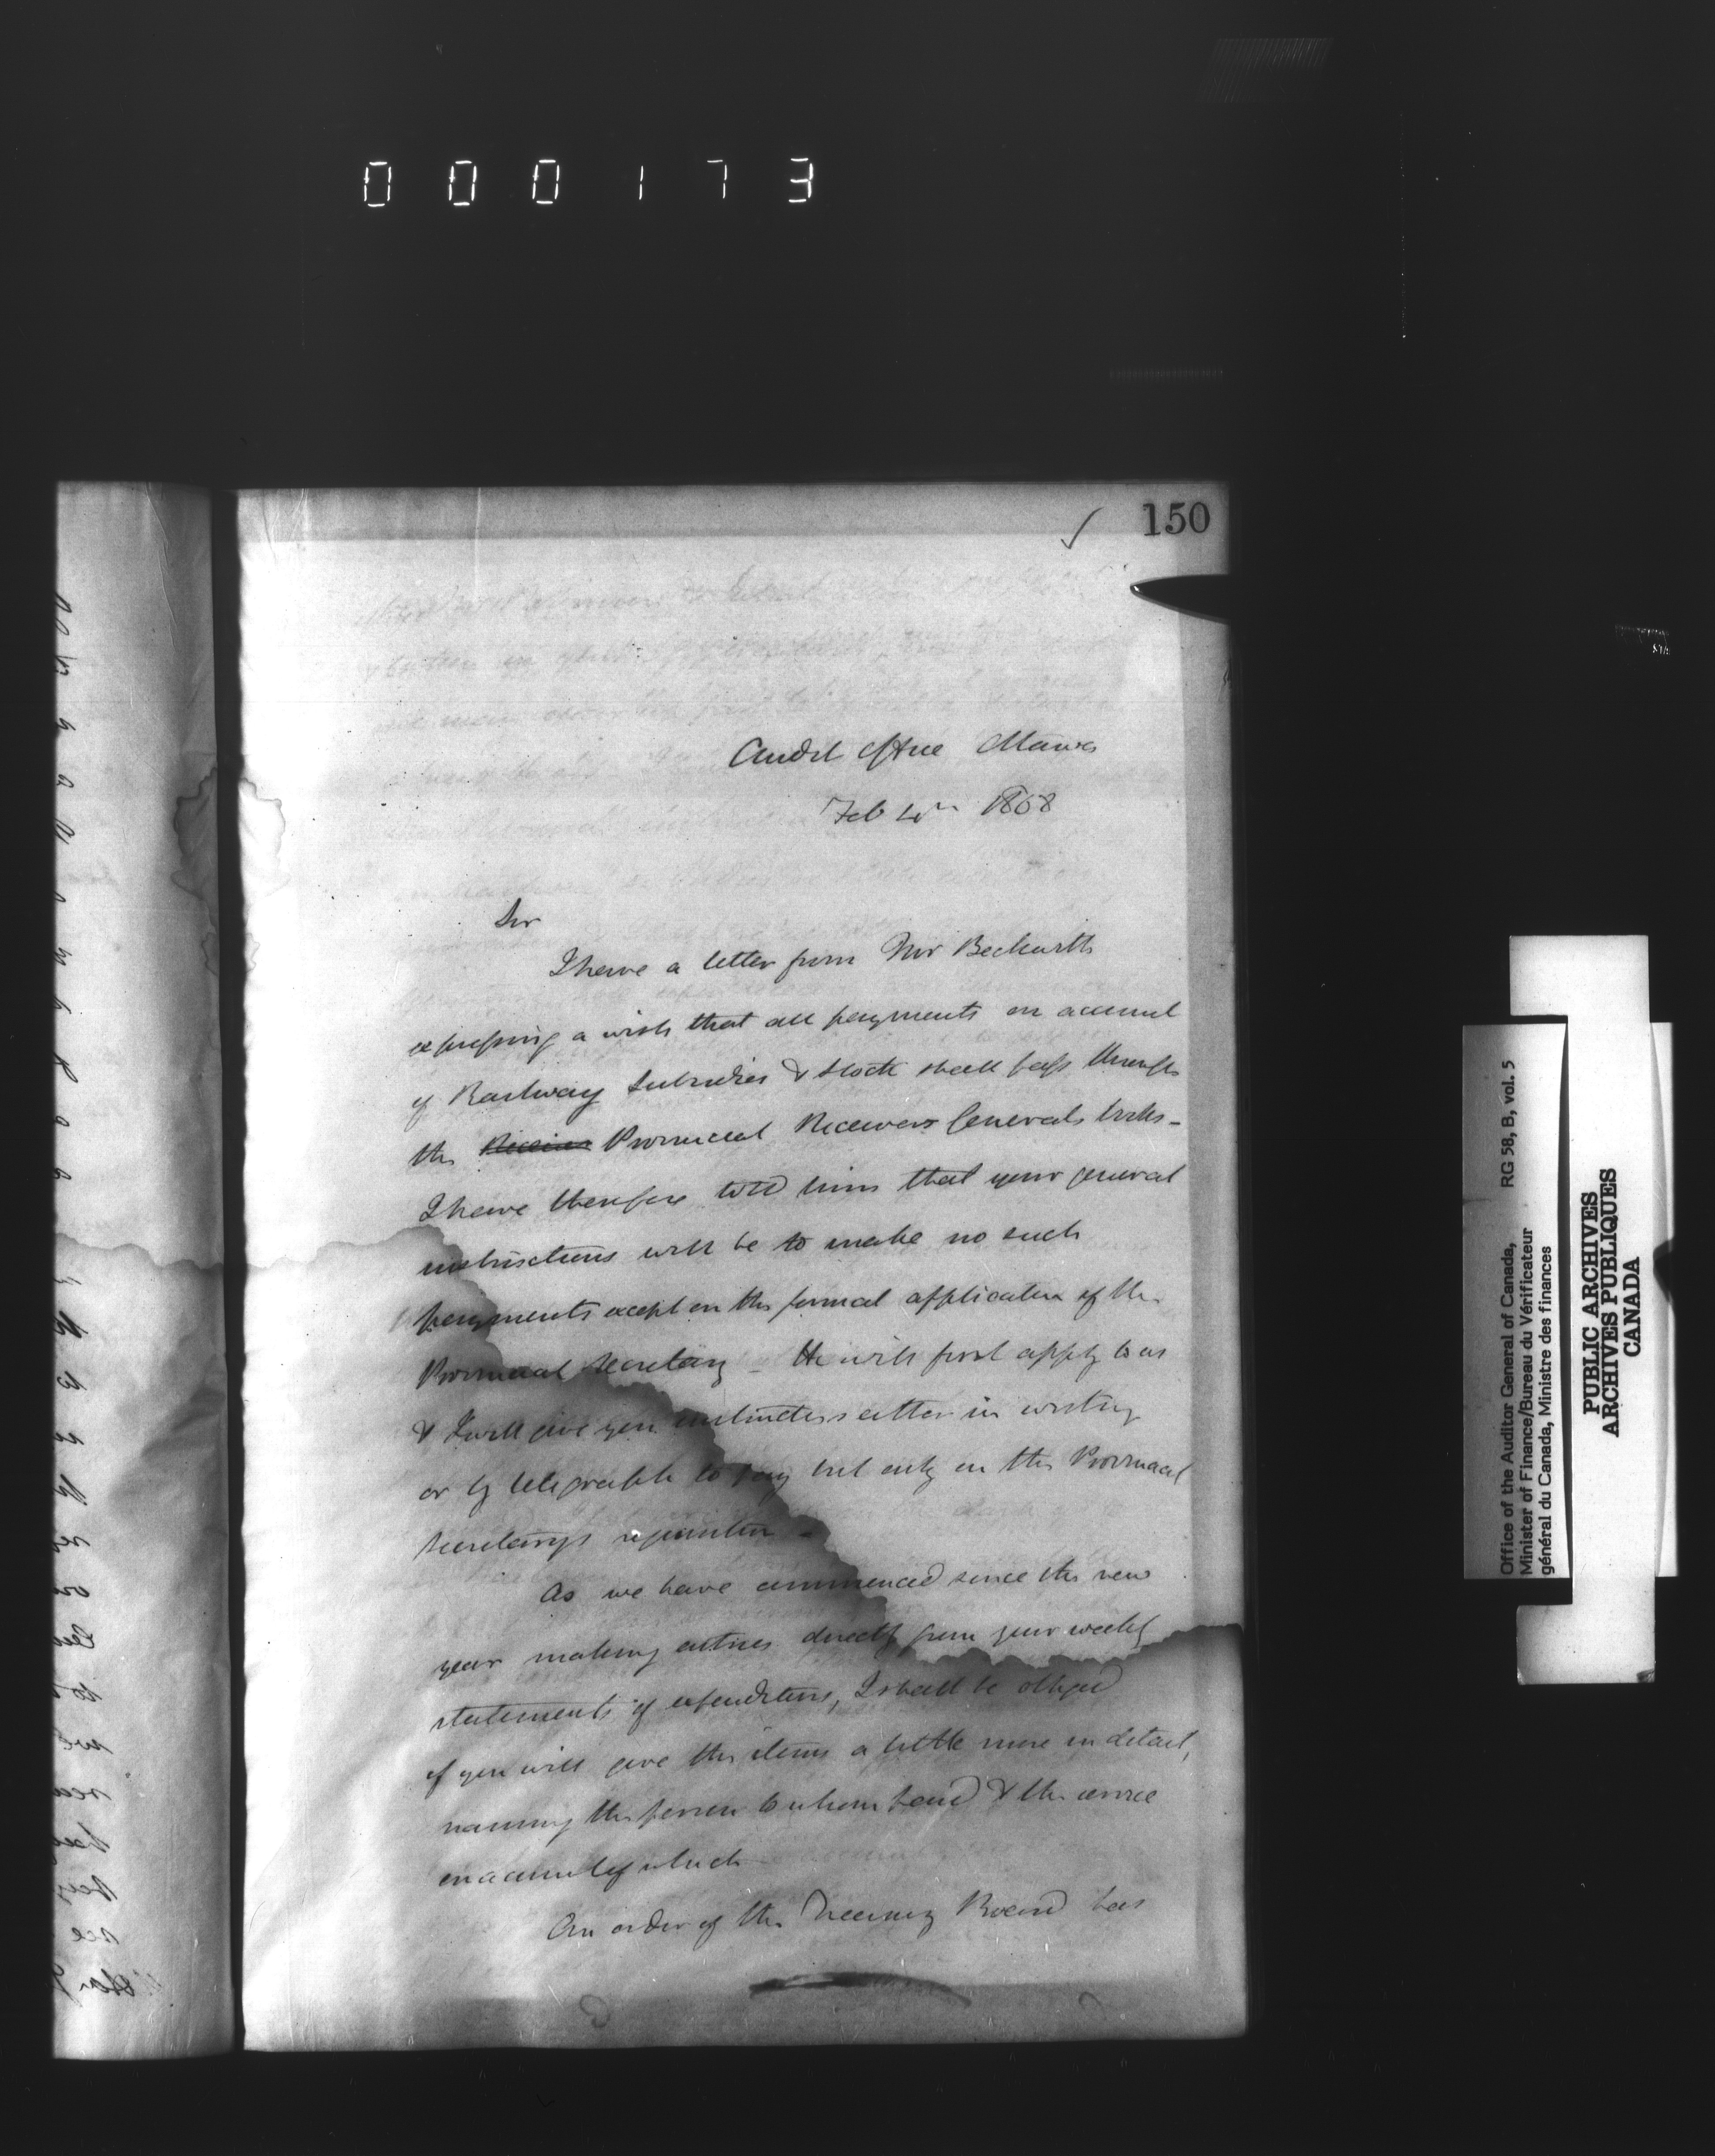 000173
150
Audit Office Ottawa
Feb 4th 1868
Sir
I have a letter from Mr Beckwith
expressing a wish that all payments on account
of Railway Subsidies & Stock shall pass through
the Provincial Receivers Generals books -
I have therefore told him that your general
instructions will be to make no such
payments except on the formal application of the
Provincial Secretary - He will first apply to us
& I will give you instructions either in writing
or by telegraph to pay but only on the Provincial
Secretarys requisition -
As we have commenced since the new
year making entries directly from your weekly
statements of expenditure, I shall be obliged
if you will give the items a little more in detail,
naming the person to whom paid & the service
on account of which
An order of the Treasury Board has
Office of the Auditor General of Canada,
Minister of Finance/Bureau du Vérificateur
général du Canada, Ministre des finances
RG 58, B, vol. 5
PUBLIC ARCHIVES
ARCHIVES PUBLIQUES
CANADA